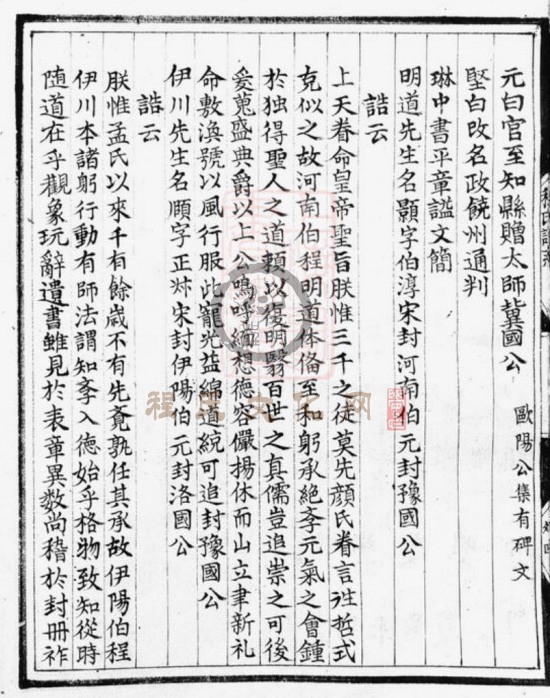 元白官至知縣贈太師冀國公 歐陽公集有碑文
堅白改名政饒州通判
琳中書平章謚文簡
明道先生名顥字伯淳宋封河南伯元封豫國公
誥云
上天眷命皇帝聖旨朕惟三千之徒莫先顔氏眷言往哲式
克似之故河南伯程明道体俻至和躬承絶斈元氣之會鍾
於独得聖人之道頼以復明翳百世之真儒豈追崇之可後
爰蒐盛典爵以上公嗚呼緬想德容儼揚休而山立聿新礼
命敷渙號以風行服此寵光益綿道統可追封豫國公
伊川先生名頤字正叔宋封伊陽伯元封洛國公
誥云
朕惟孟氏以來千有餘歲不有先覺孰任其承故伊陽伯程
伊川本諸躬行動有師法謂知斈入德始乎格物致知從時
随道在乎觀象玩辭遺書雖見於表章異数尚稽於封冊祚
程氏譜系
程淳文化网